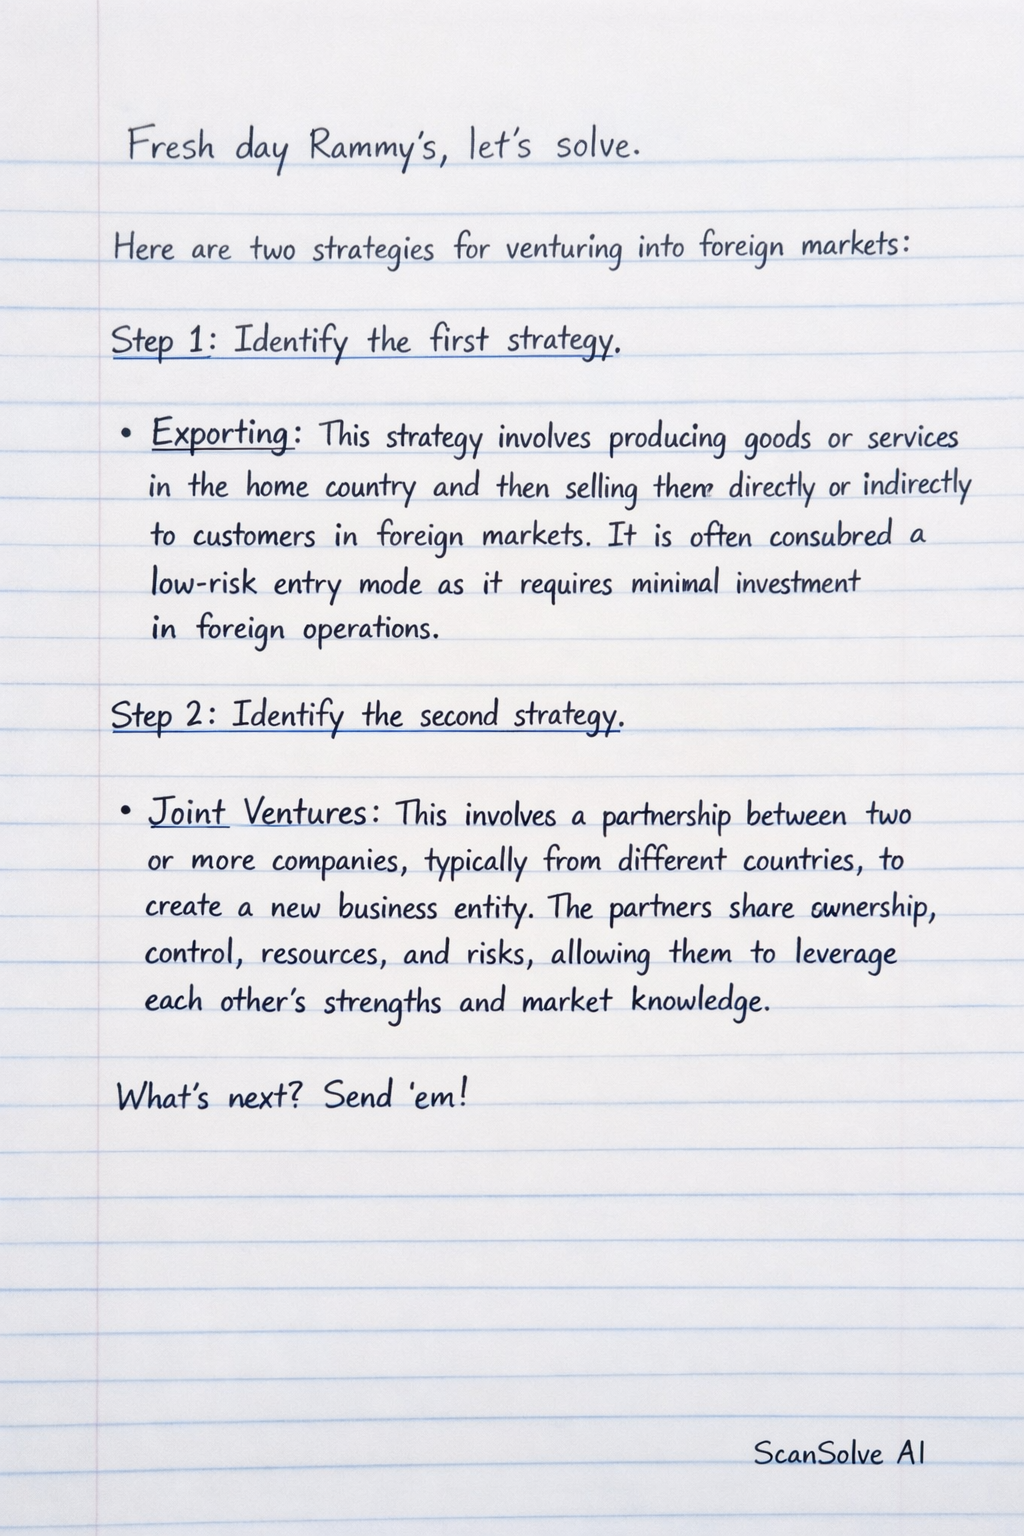 Fresh day Rammy's, let's solve.
Here are two strategies for venturing into foreign markets:
Step 1: Identify the first strategy.
• Exporting: This strategy involves producing goods or services
in the home country and then selling them directly or indirectly
to customers in foreign markets. It is often consubred a
low-risk entry mode as it requires minimal investment
in foreign operations.
Step 2: Identify the second strategy.
• Joint Ventures: This involves a partnership between two
or more companies, typically from different countries, to
create a new business entity. The partners share ownership,
control, resources, and risks, allowing them to leverage
each other's strengths and market knowledge.
What's next? Send 'em!
ScanSolve AI